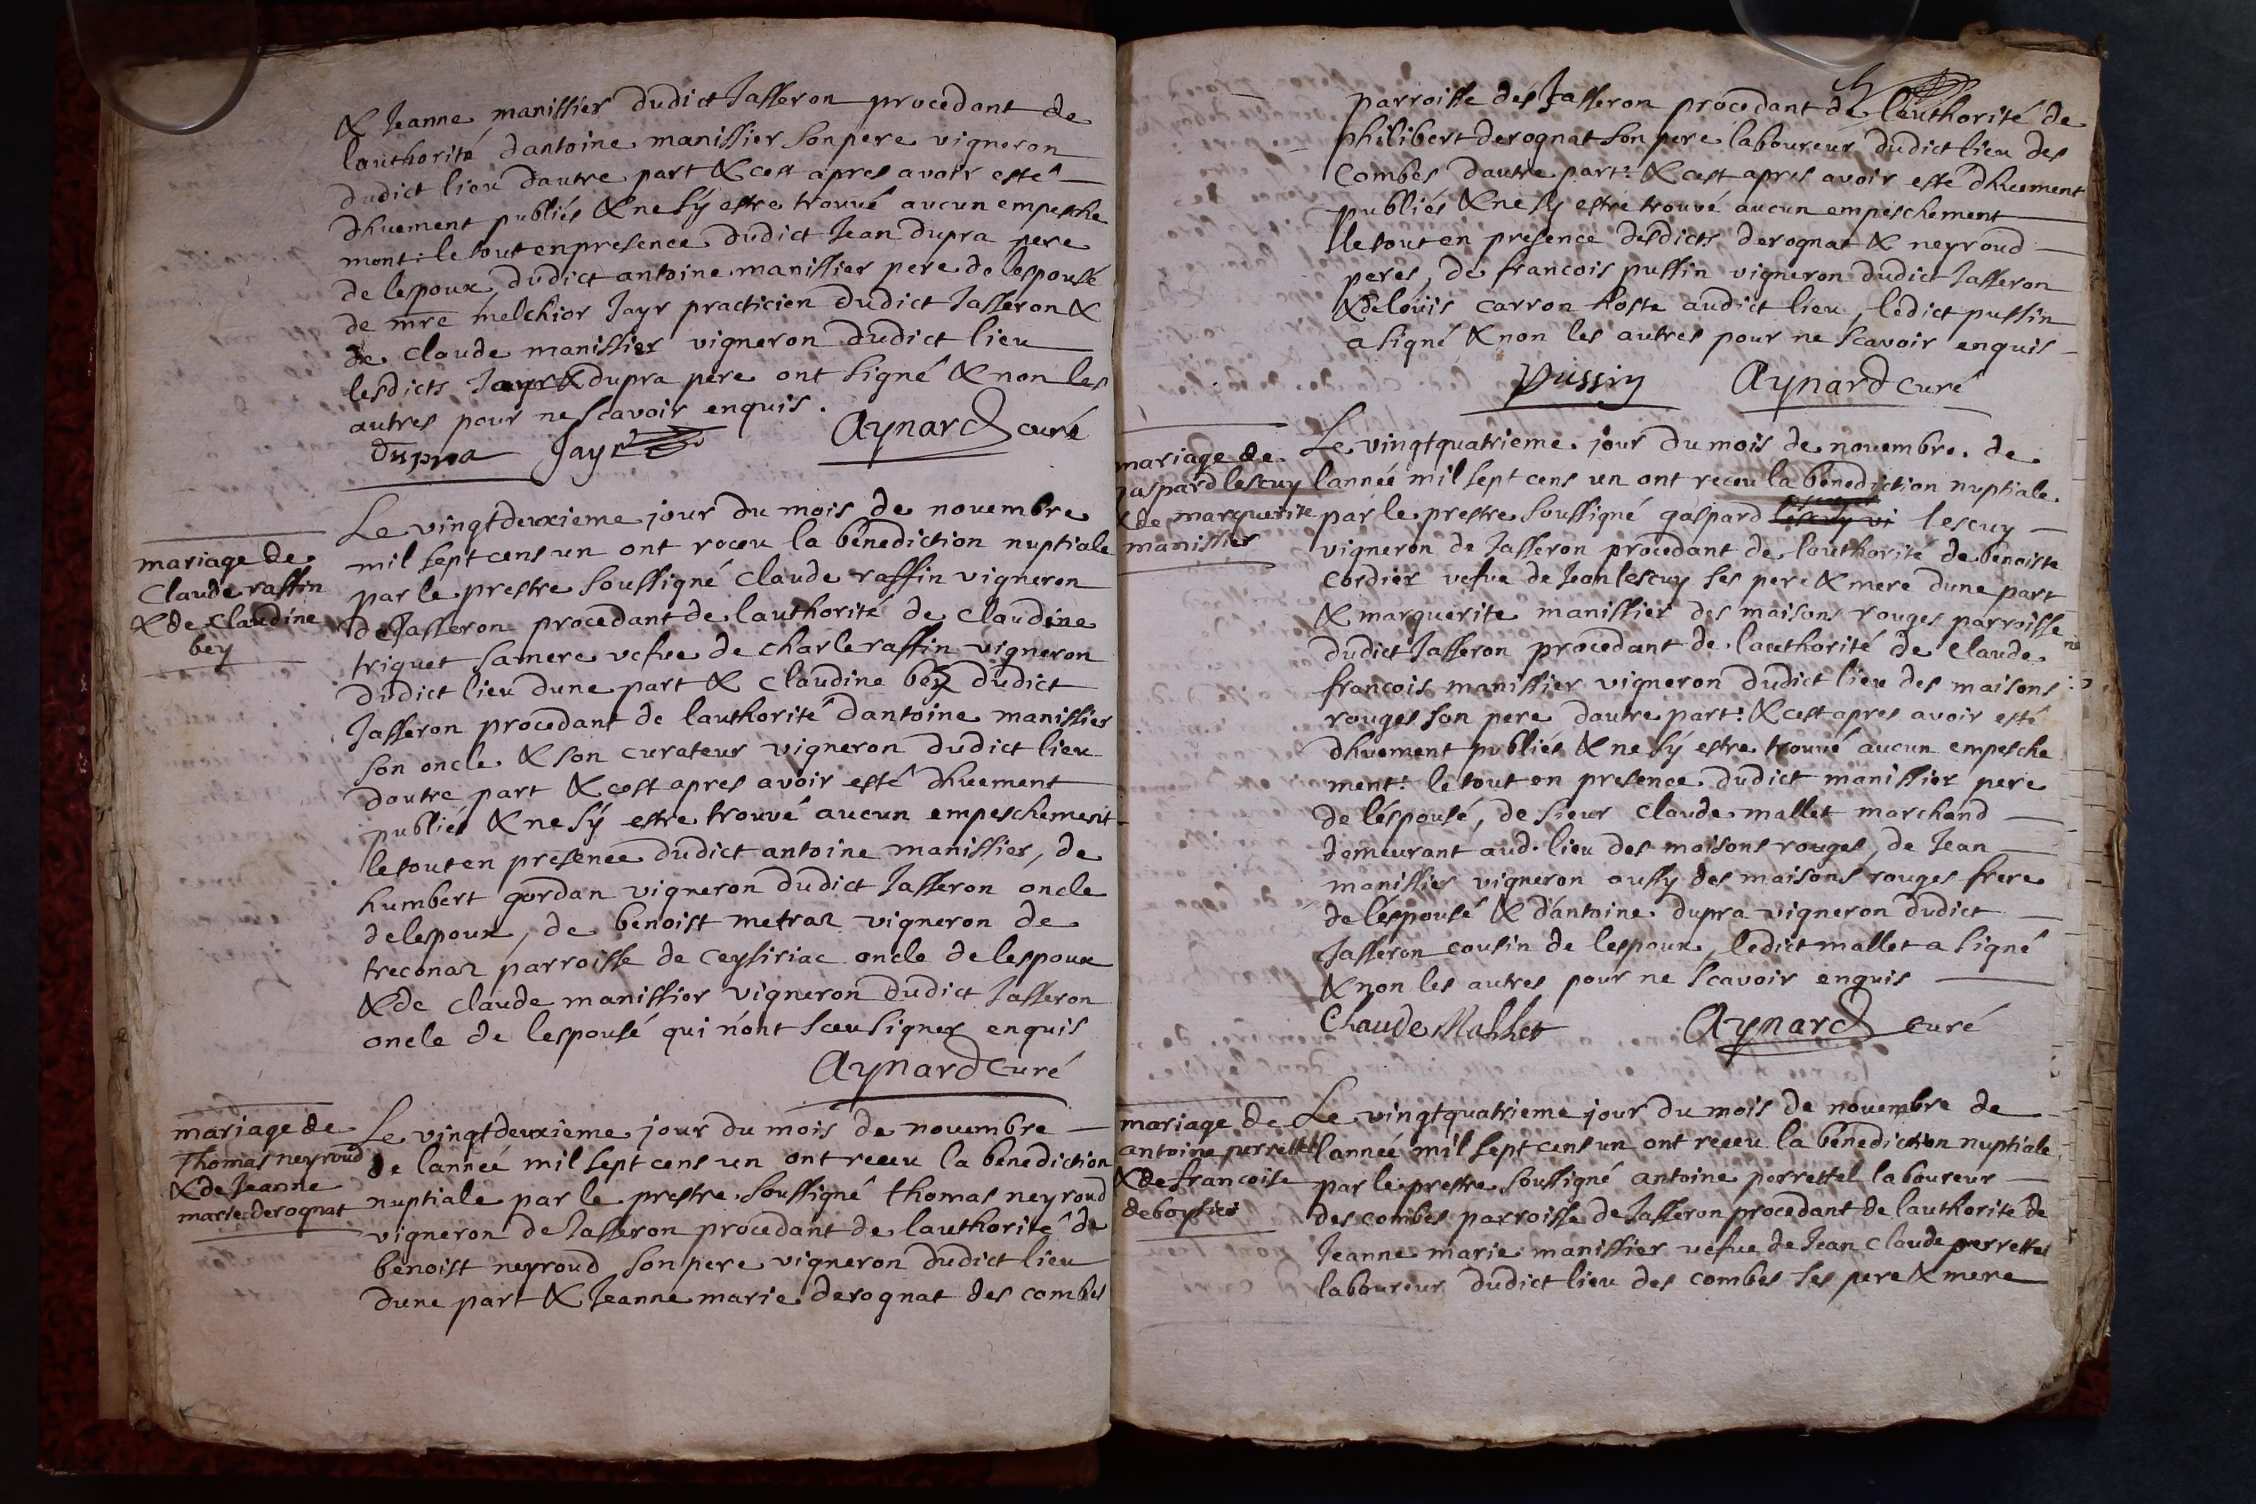 & Jeanne manissier dudict Jasseron procedant de
lauthorité dantoine manissier son pere vigneron
dudict lieu dautre part & cest apres avoir esté
dhuement publiés & ne sý estre trouvé aucun empesche
ment: le tout en presence dudict Jean dupra pere
de lespoux dudict antoine manissier pere de lespousé
de mre melchior Jayr practicien dudict Jasseron &
de claude manissier vigneron dudict lieu
lesdicts Jayr & dupra pere ont signé & non les
autres pour ne scavoir enquis.
dupra Jayr Aynard curé
mariage de
Claude raffin
& de Claudine
bey
Le vingtdeuxieme jour du mois de novembre
mil sept cens un ont receu la benediction nuptiale
par le prestre soussigné claude raffin vigneron
de Jasseron procedant de lauthorité de claudine
triquet sa mere vefve de charle raffin vigneron
dudict lieu dune part & claudine bey dudict
Jasseron procedant de lauthorité dantoine manissier
son oncle & son curateur vigneron dudict lieu
dautre part & cest apres avoir esté dhuement
publiés & ne sý estre trouvé aucun empeschement
le tout en presence dudict antoine manissier, de
humbert gordan vigneron dudict Jasseron oncle
de lespoux, de benoist metraz vigneron de
treconaz parroisse de ceysiriac oncle de lespoux
& de claude manissier vigneron dudict Jasseron
oncle de lespousé qui n'ont sceu signer enquis
Aynard curé
mariage de
Thomas neyroud
& de Jeanne
marie derognat
Le vingtdeuxieme jour du mois de novembre
de lanneé mil sept cens un ont receu la benediction
nuptiale par le prestre soussigné thomas neyroud
vigneron de Jasseron procedant de lauthorité de
benoist neyroud son pere vigneron dudict lieu
dune part & Jeanne marie derognat des combes
parroisse des Jasseron procedant de lauthorité de
philibert derognat son pere laboureur dudict lieu des
Combes dautre part: & cest apres avoir esté dhuement
publiés & ne sy estre trouvé aucun empeschement
le tout en presence desdicts derognat & neyroud
peres, de francois pussin vigneron dudict Jasseron
& de loüis carron hoste audict lieu, ledict pussin
a signé & non les autres pour ne scavoir enquis
Pussin Aynard curé
mariage de
gaspard lescuy
& de marguerite
manissier
Le vingtquatrieme jour du mois de novembre de
lanneé mil sept cens un ont receu la benediction nuptiale
par le prestre soussigné gaspard lescuy vi lescuy
vigneron de Jasseron procedant de lauthorité de benoiste
cordier vefve de Jean lescuy ses pere & mere dune part
& marguerite manissier des maisons rouges parroisse
dudict Jasseron procedant de lauthorité de claude
francois manissier vigneron dudict lieu des maisons
rouges son pere dautre part: & cest apres avoir esté
dhuement publiés & ne sý estre trouvé aucun empesche
ment: le tout en presence dudict manissier pere
de léspousé, de sieur claude mallet marchand
demeurant aud. lieu des maisons rouges, de Jean
manissier vigneron aussy des maisons rouges frere
de léspousé & d'antoine dupra vigneron dudict
Jasseron cousin de lespoux, ledict mallet a signé
& non les autres pour ne scavoir enquis
Claude Mallet Aynard curé
mariage de
antoine perrettel
& de francoise
deboyssier
Le vingtquatrieme jour du mois de novembre de
lanneé mil sept cens un ont receu la benediction nuptiale
par le prestre soussigné antoine perrettel laboureur
des combes parroisse de Jasseron procedant de lauthorité de
Jeanne marie manissier vefve de Jean claude perrettel
laboureur dudict lieu des combes ses pere & mere